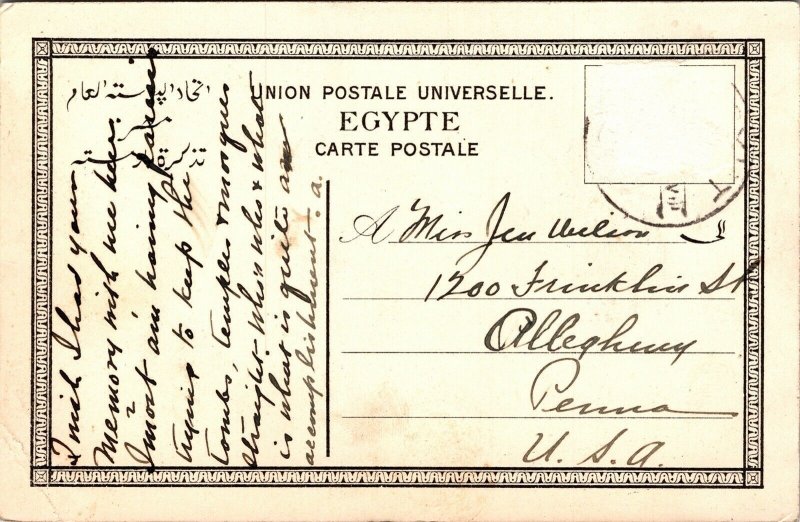 اتحاد البوسته العام
UNION POSTALE UNIVERSELLE.
مصر
EGYPTE
تذكرة بوسته
CARTE POSTALE
A Miss Jen Wilson
الى
1200 Franklin St
Allegheny
Penna
U. S. A.
I wish I had your
Memory with me here.
I most am having paresis
trying to keep the
tombs, temples & mosques
straight. Who's who & what
is what is quite an
accomplishment. a.